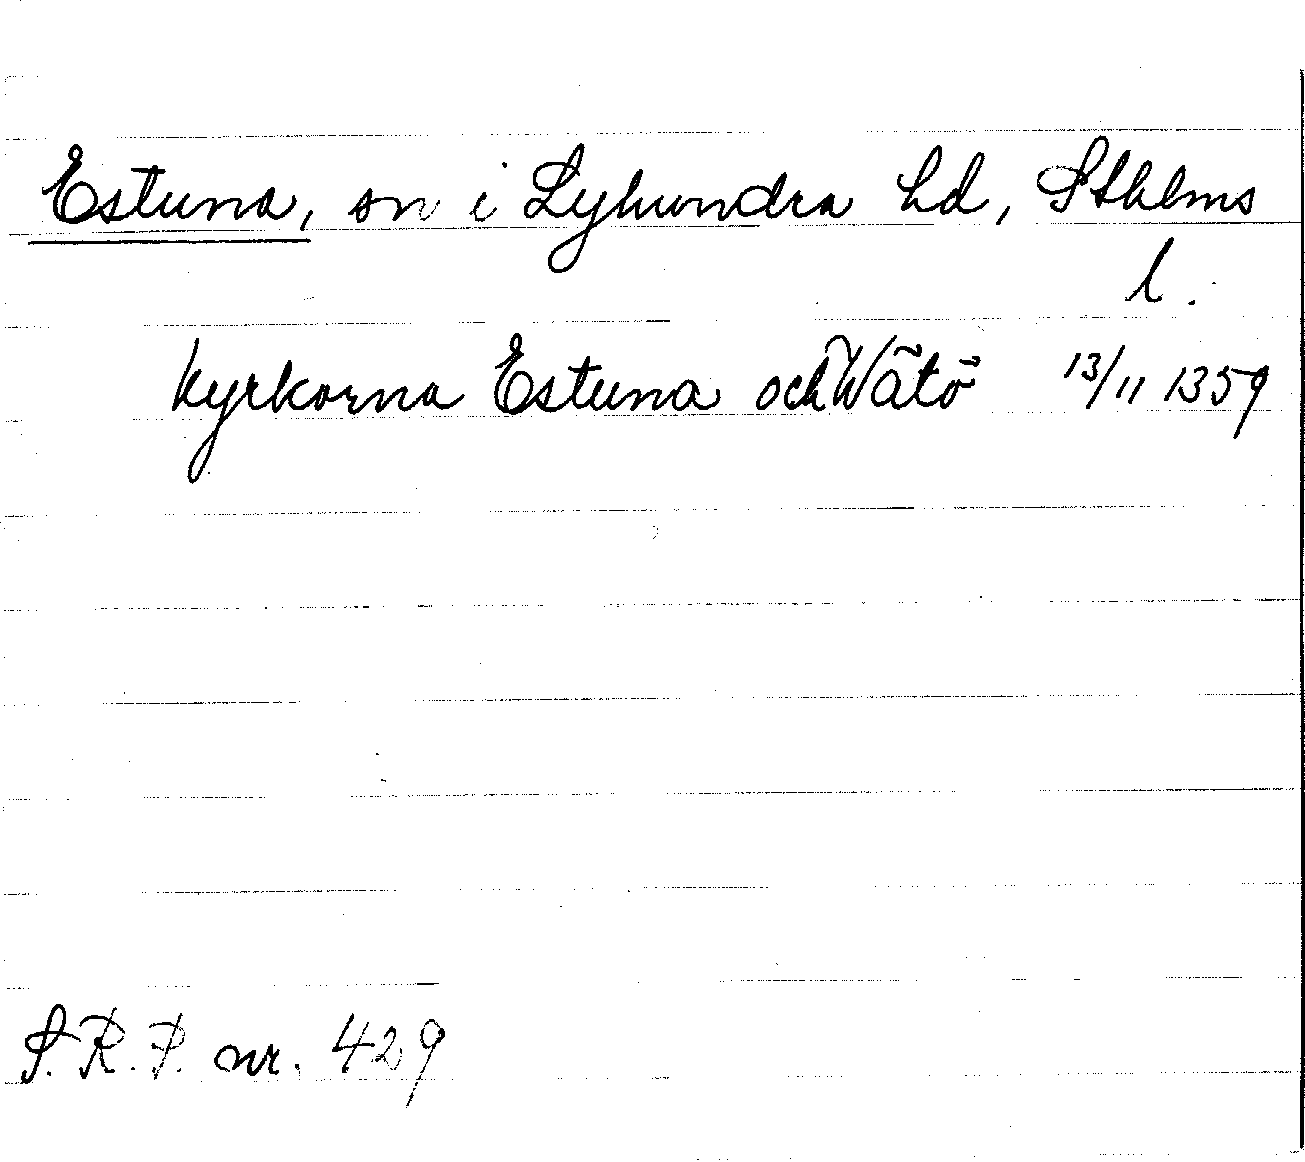 Estuna, sn i Lyhundra hd, Sthlms
l.
kyrkorna Estuna och Wätö 13/11 1359
S.R.P. nr. 429